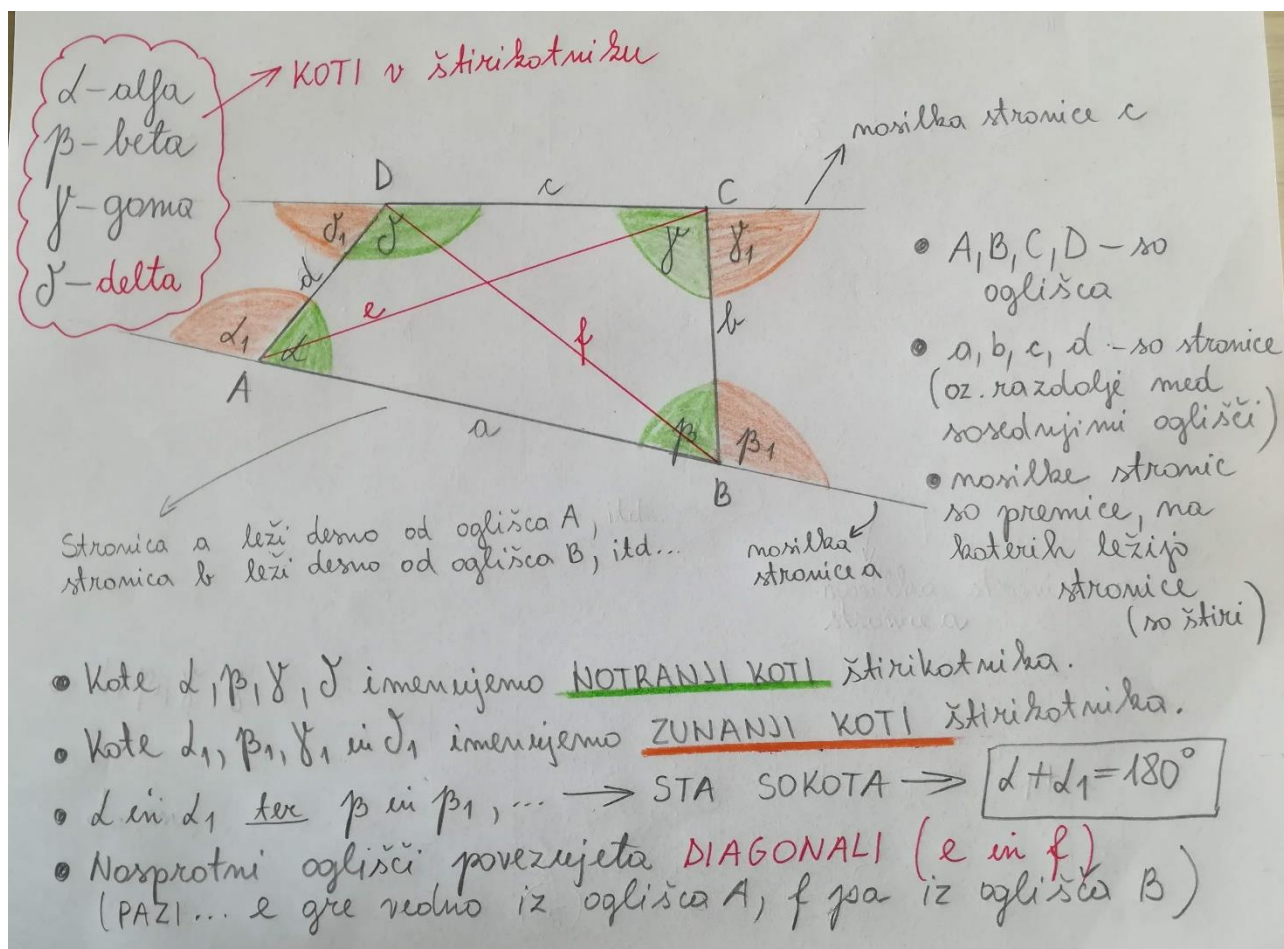 α-alfa
β-beta
γ-gama
δ-delta
KOTI v štirikotniku
nosilka stronice c
D
c
C
δ1
δ
γ
γ1
d
e
f
b
α1
α
A
a
β
β1
B
• A, B, C, D – so
oglišča
• a, b, c, d – so stranice
(oz. razdalje med
sosednjimi oglišči)
• nosilke stranic
so premice, na
katerih ležijo
stranice
(so štiri)
Stranica a leži desno od oglišča A, itd.
stranica b leži desno od oglišča B, itd...
nosilka
stranice a
• Kote α, β, γ, δ imenujemo NOTRANJI KOTI štirikotnika.
• Kote α1, β1, γ1 in δ1 imenujemo ZUNANJI KOTI štirikotnika.
• α in α1 ter β in β1, ... → STA SOKOTA → α + α1 = 180°
• Nasprotni oglišči povezujeta DIAGONALI (e in f)
(PAZI... e gre vedno iz oglišča A, f pa iz oglišča B)